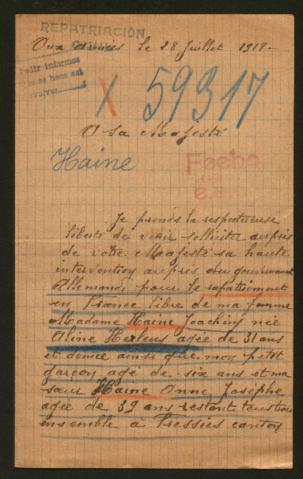 REPATRIACIÓN
Aux Armées Le 28 Juillet 1918 -
Pedir informes
X 59317
A Sa Majesté
Haine
Je prends la respectueuse
liberté de venir solliciter auprès
de votre Majesté sa haute
intervention auprès du gouvernement
Allemand pour le rapatriement
en France libre de ma femme
Madame Haine Joachim née
Aline agée de 31 ans
et demie ainsi que mon petit
garçon agé de six ans et ma
sœur Haine Anne Josèphe
agée de 39 ans restant tous trois
ensemble à Pressies canton